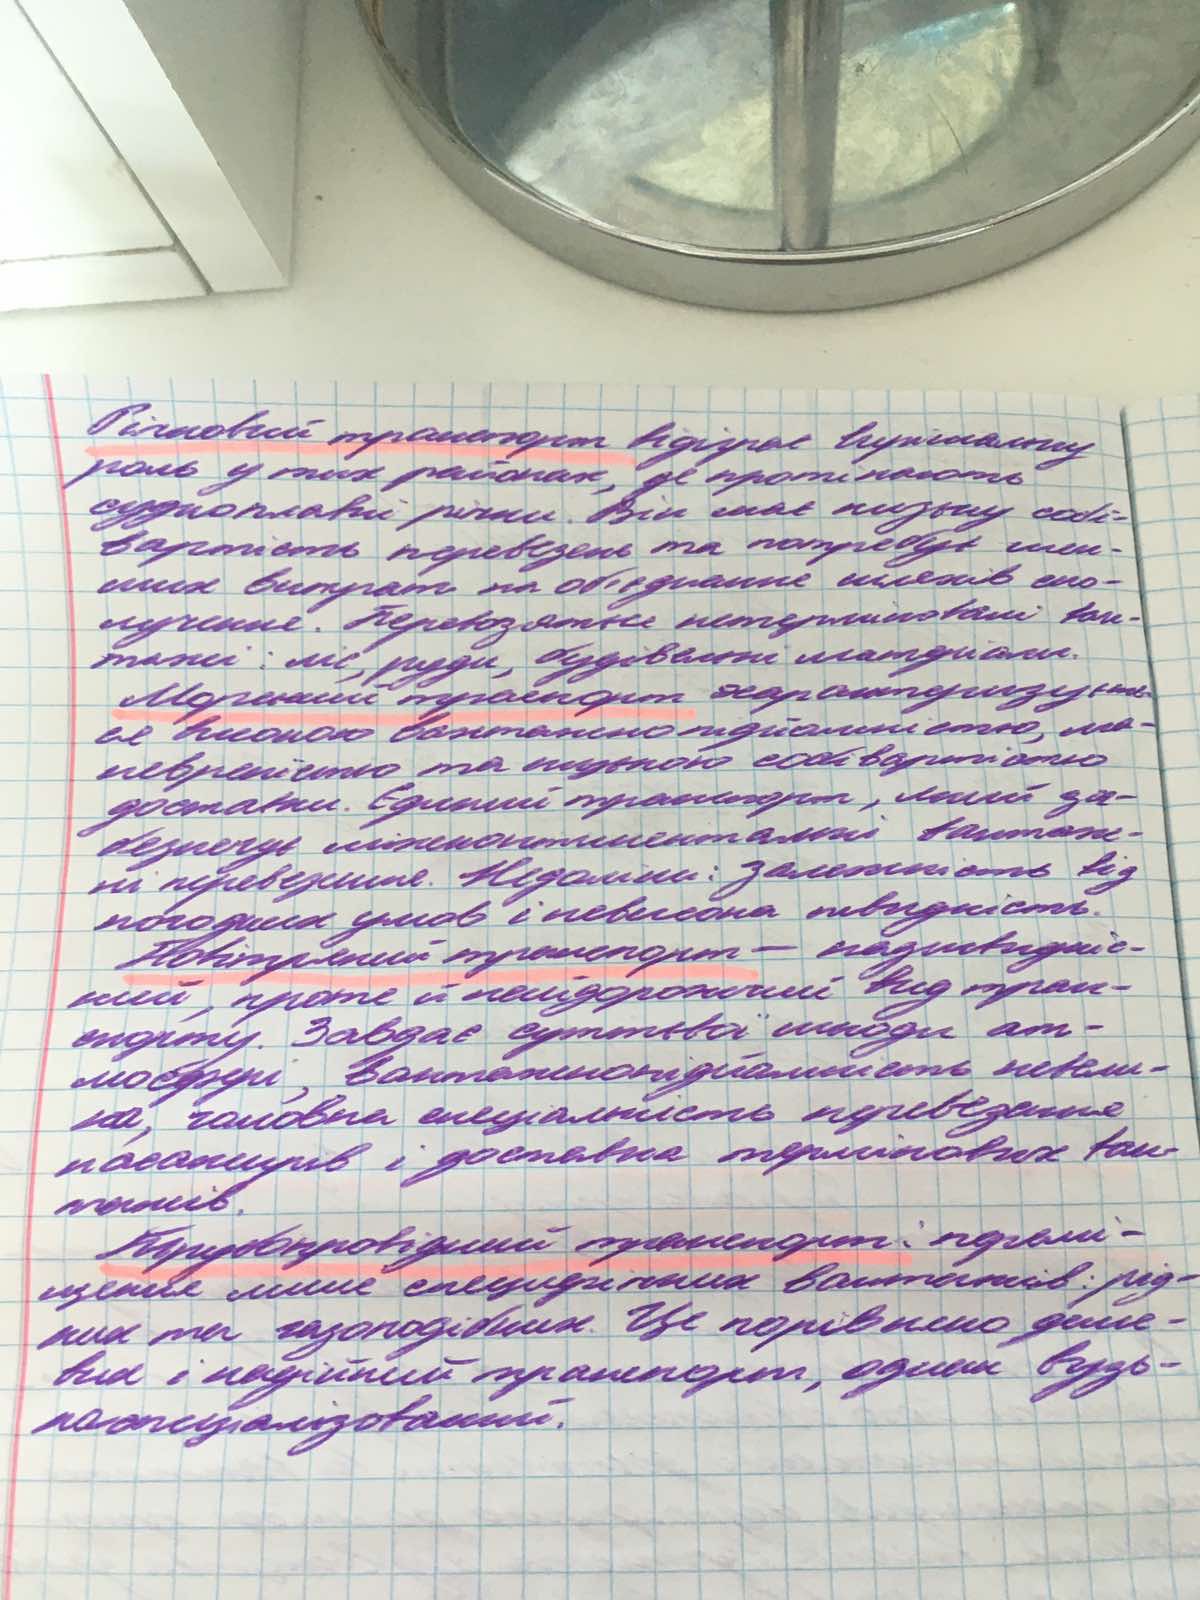 Річковий транспорт відіграє вирішальну
роль у тих районах, де протікають
судноплавні річки. Він має низьку собі-
вартість перевезень та потребує мен-
ших витрат на об'єднання шляхів спо-
лучення. Перевозяться нетермінові ван-
тажі: ліс, руди, будівельні матеріали.
Морський транспорт характеризуєть-
ся високою вантажнопідйомністю, ма-
невреністю та низькою собівартістю
доставки. Єдиний транспорт, який за-
безпечує міжконтинентальні вантаж-
ні перевезення. Недоліки: залежність від
погодних умов і невисока швидкість.
Повітряний транспорт — найшвидкіс-
ний, проте й найдорожчий вид тран-
спорту. Завдає суттєвої шкоди ат-
мосфері, вантажнопідйомність невели-
ка, головна спеціальність перевезення
пасажирів і доставка термінових ван-
тажів.
Трубопровідний транспорт: переміщ-
щення лише специфічних вантажів: рід-
ких та газоподібних. Це порівняно деше-
вий і надійний транспорт, однак вузь-
коспеціалізований.